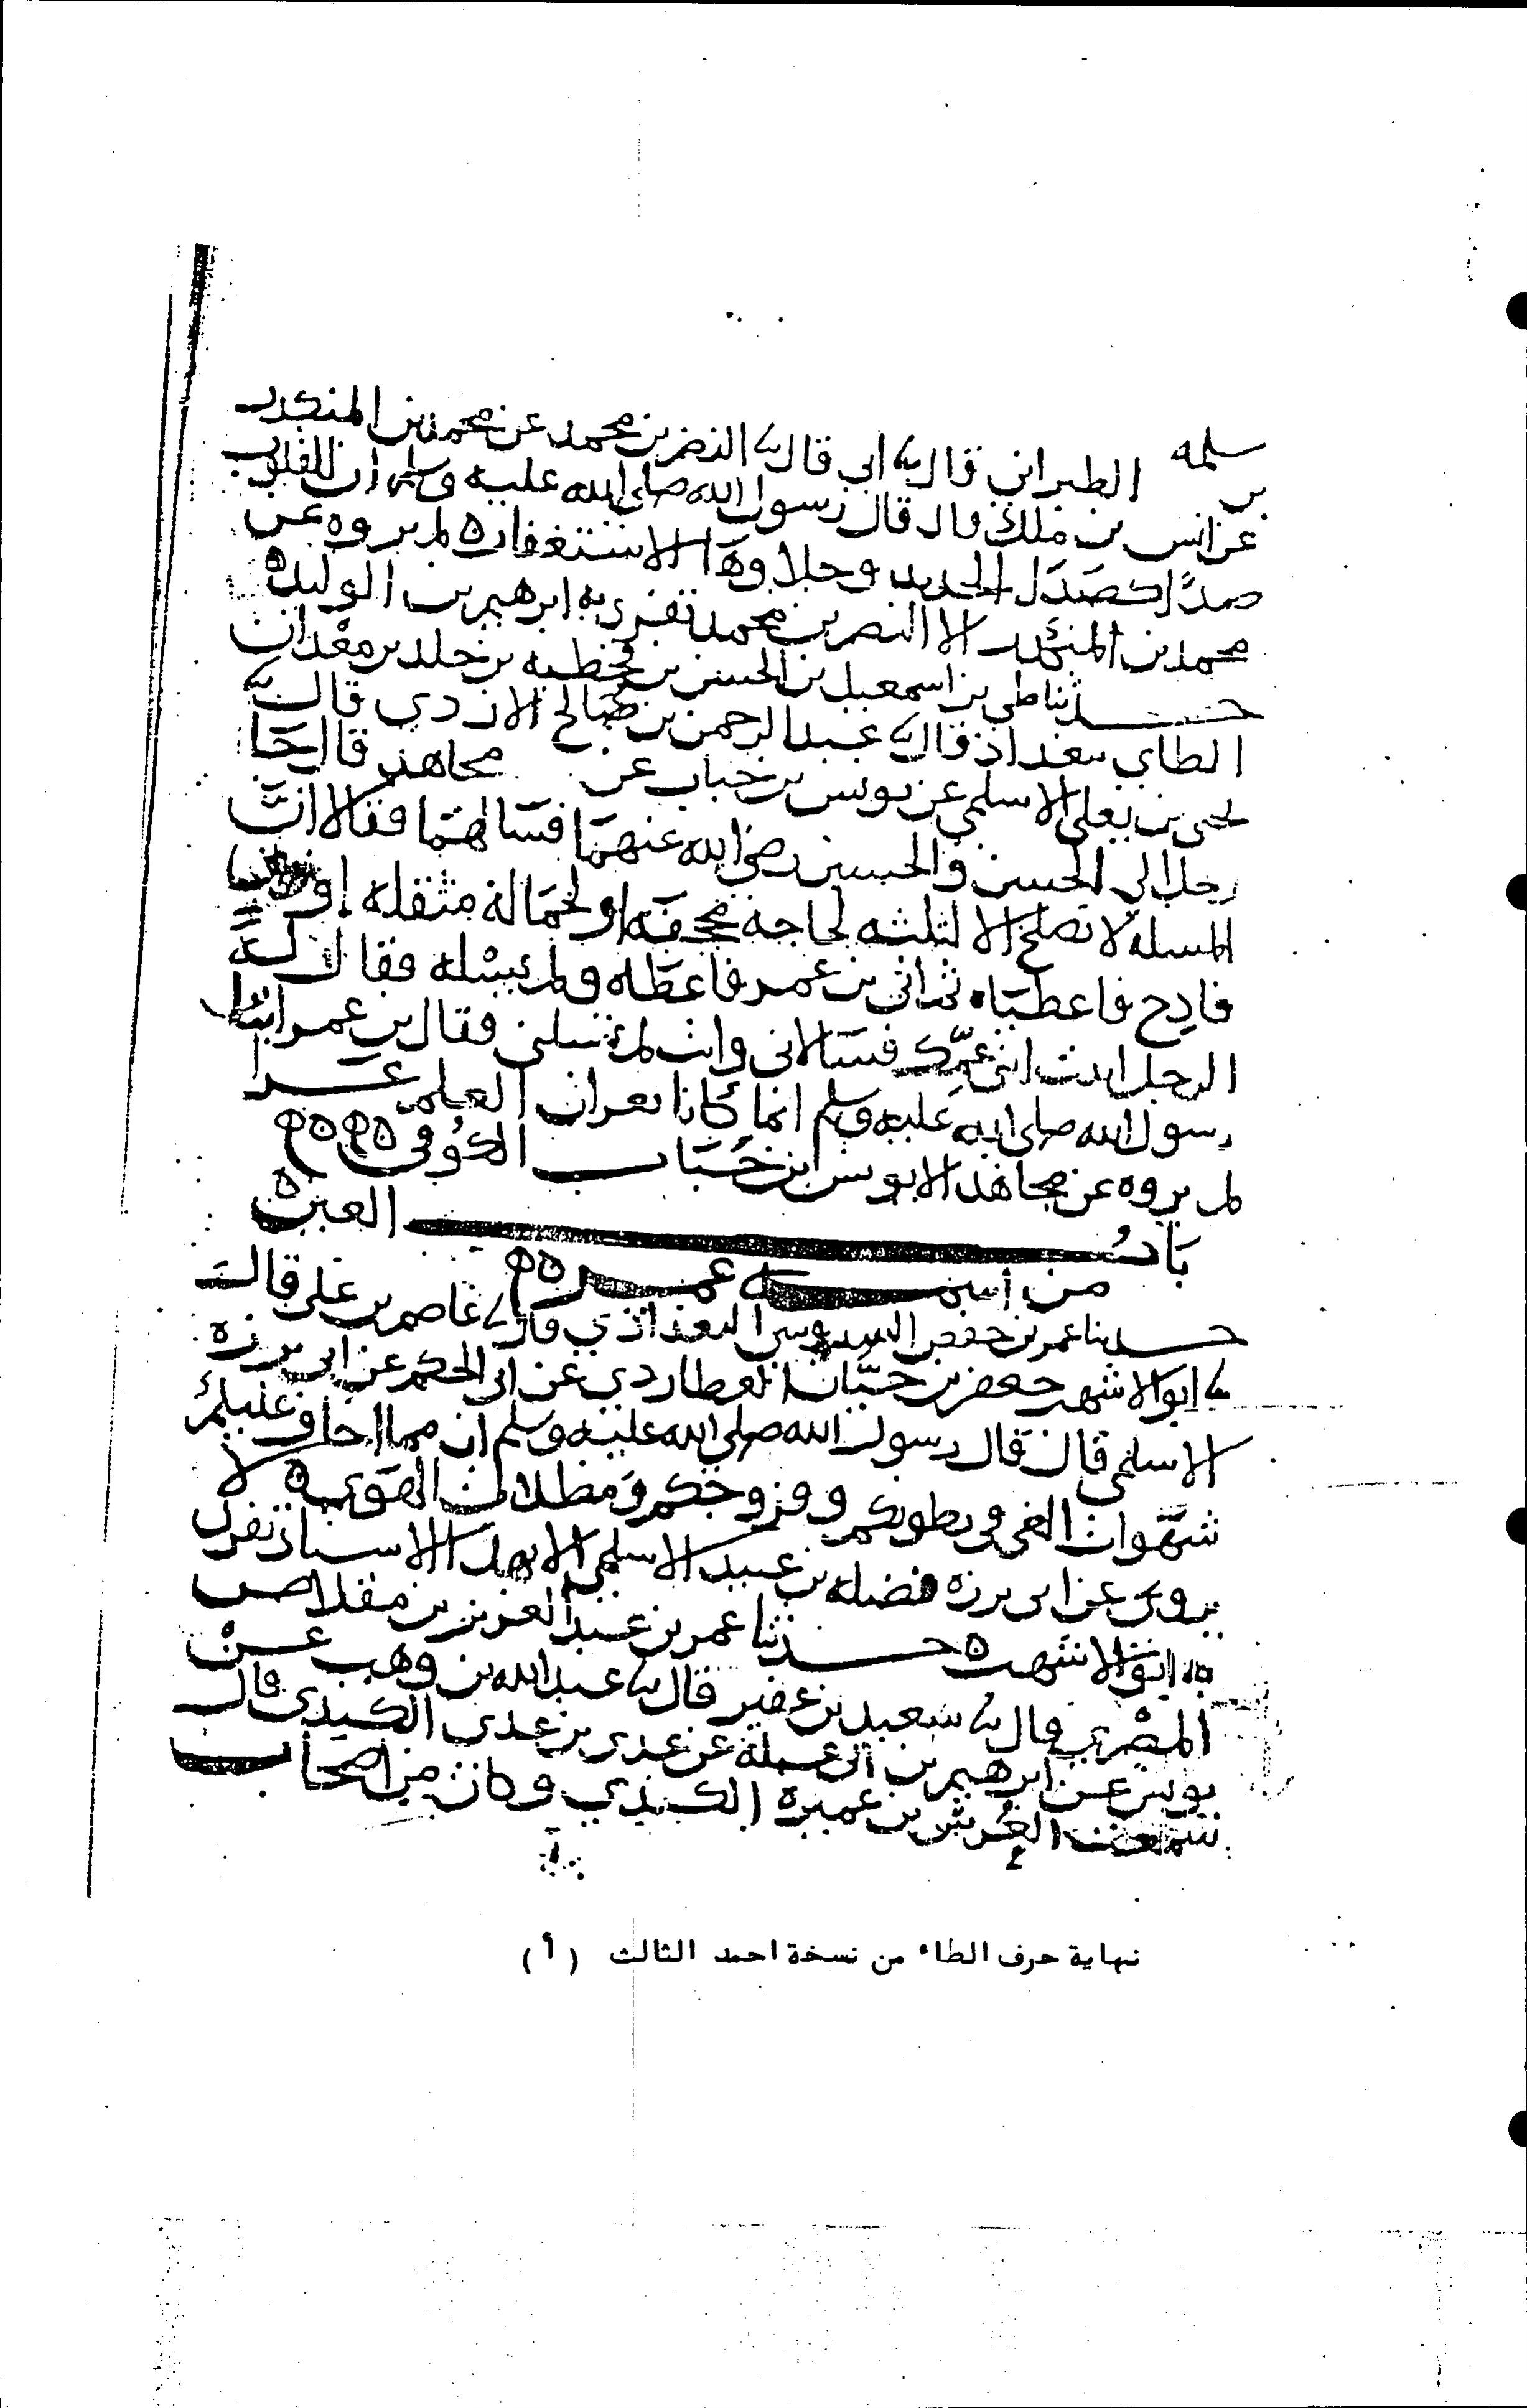 بن سلمه الطبراني قال نا ابي قال نا النضر بن محمد عن محمد بن المنكدر
عن انس بن ملك قال قال رسول الله صلى الله عليه وسلم ان للقلوب
صدًا كصدا الحديد وجلاوها الاستغفار ه لم يروه عن
محمد بن المنكدر الا النضر بن محمد تفرد به ابرهيم بن الوليد ه
حدثنا طي بن اسمعيل بن الحسن بن قحطبه بن خلد بن معدان
الطاي ببغداد قال نا عبد الرحمن بن صالح الازدي قال نا
يحيى بن يعلى الاسلمي عن يونس بن خباب عن مجاهد قال جا
رجل الى الحسن والحسين رضي الله عنهما فسالهما فقالا ان
المسله لا تصلح الا لثلثه لحاجة مجحفه او لحمالة مثقله او
فادح فاعطياه ثم اتى بن عمر فاعطاه ولم يسله فقال له
الرجل اتيت ابني عمك فسالاني وانت لم تسلني فقال بن عمر ابنا
رسول الله صلى الله عليه وسلم انما كانا يغران العلم غرا
لم يروه عن مجاهد الا يونس بن خباب الكوفي ه ه ه
باب العين ه
من اسمه عمر ه ه
حدثنا عمر بن حفص السدوسي البغداذي قال نا عاصم بن علي قال
نا ابو الاشهب جعفر بن حيان العطاردي عن ابي الحكم عن ابي برزه
الاسلمي قال قال رسول الله صلى الله عليه وسلم ان مما اخاف عليكم
شهوات الغي في بطونكم وفروجكم ومضلات الهوى ه لا
يروى عن ابي برزه نضله بن عبيد الاسلمي الا بهذا الاسناد تفرد
به ابو الاشهب ه حدثنا عمر بن عبد العزيز بن مقلاص
المصري قال نا سعيد بن عفير قال نا عبد الله بن وهب عن
يونس عن ابرهيم بن ابي عبلة عن عدي بن عدي الكندي قال
سمعت العرس بن عميرة الكندي وكان من اصحاب
نهاية حرف الطاء من نسخة احمد الثالث (أ)